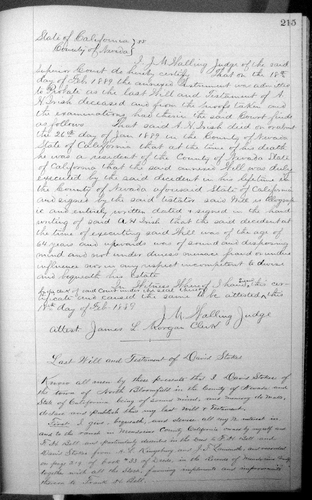 215
State of California } ss
County of Nevada }
I, J. M. Walling Judge of the said
Superior Court do hereby certify That on the 18th
day of Feb 1889 the annexed instrument was admitted
to Probate as the Last Will and Testament of A.
H. Irish deceased and from the proofs taken and
the examinations had therein the said Court finds
as follows That said A. H. Irish died on or about
the 26th day of Jan 1889 in the County of Nevada
State of California that at the time of his death
he was a resident of the County of Nevada State
of California that the said annexed Will was duly
executed by the said decedent in his lifetime in
the County of Nevada aforesaid State of California
and signed by the said testator said Will is Olograph
ic and entirely written dated & signed in the hand
writing of said A. H. Irish that the said decedent at
the time of executing said Will was of the age of
64 years and upwards was of sound and disposing
mind and not under duress menace fraud or undue
influence nor in any respect incompetent to devise
and bequeath his estate
In Witness Whereof I have signed this cer
tificate and caused the same to be attested this
18th day of Feb 1889
J. M. Walling Judge
Attest James L. Morgan Clerk
Last Will and Testament of Davis Stokes
Know all men by these presents that I Davis Stokes of
the town of North Bloomfield in the County of Nevada and
State of California being of sound mind and memory do make,
declare and publish this my last Will & Testament.
First I give, bequeath, and devise all my interest in
and to the ranch in Mendocino County California owned by myself and
F. H. Bell and particularly described in the deed to F. H. Bell and
Davis Stokes from and recorded
on page of Deeds in the Records of Mendocino County
together with all the stock, farming implements and improvements
thereon to Frank H. Bell.